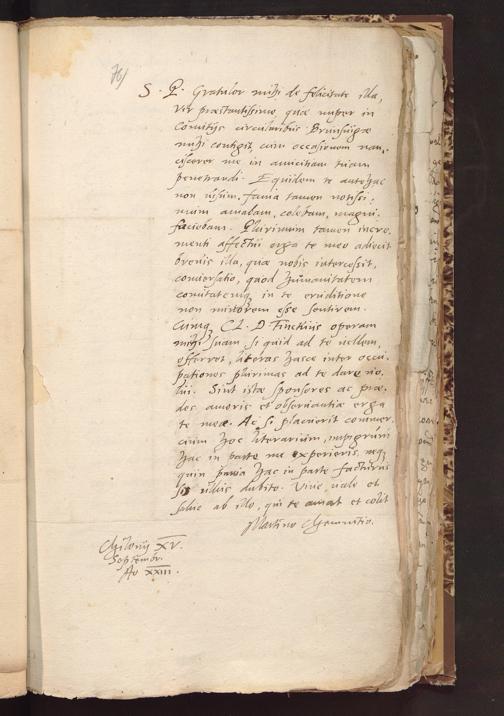 76/
S. P. Gratulor mihi de felicitate illa,
Vir præstantissime, quæ nuper in
Comitijs circularibus Brunsuigæ
mihi contigit, cum occasionem nan-
ciscerer me in amicitiam tuam
penetrandi. Equidem te antehac
non visum, fama tamen notissi-
mum amabam, colebam, magni-
faciebam. Plurimum tamen incre-
menti affectui erga te meo adiecit
brevis illa, quæ nobis intercessit,
conversatio, quod humanitatem
comitatemq; in te eruditione
non minorem esse sentirem.
Cumq; Cl. D Finckius operam
mihi suam si quid ad te vellem,
offerret, literas hasce inter occu-
pationes plurimas ad te dare vo-
lui. Sint istæ sponsores ac præ-
des amoris et observantiæ erga
te meæ. Ac si placuerit commer-
cium hoc literarium, impigrum
hac in parte me experieris, neq;
quin paria hac in parte facturus
sis ullus dubito. Vive, vale et
salve ab illo, qui te amat et colit
Martino Chemnitio.
XV.
Septembr.
Ao XXIII.